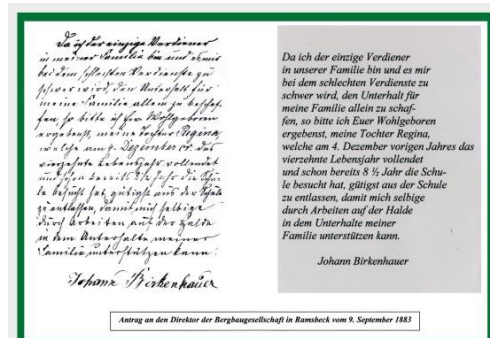 Da ich der einzige Verdiener
in meiner Familie bin und es mir
bei dem schlechten Verdienste zu
schwer wird, den Unterhalt für
meine Familie allein zu beschaf-
fen, so bitte ich Euer Wohlgeboren
ergebenst, meine Tochter Regina,
welche am 4. Dezember das
vierzehnte Lebensjahr vollendet
und schon bereits Jahr die Schu-
le besucht hat, gütigst aus der Schule
zu entlassen, damit mich selbige
durch Arbeiten auf der Halde
in dem Unterhalte meiner
Familie unterstützen kann.
Johann Birkenhauer
Da ich der einzige Verdiener
in unserer Familie bin und es mir
bei dem schlechten Verdienste zu
schwer wird, den Unterhalt für
meine Familie allein zu schaf-
fen, so bitte ich Euer Wohlgeboren
ergebenst, meine Tochter Regina,
welche am 4. Dezember vorigen Jahres das
vierzehnte Lebensjahr vollendet
und schon bereits 8 ½ Jahr die Schu-
le besucht hat, gütigst aus der Schule
zu entlassen, damit mich selbige
durch Arbeiten auf der Halde
in dem Unterhalte meiner
Familie unterstützen kann.
Johann Birkenhauer
Antrag an den Direktor der Bergbaugesellschaft in Ramsbeck vom 9. September 1883